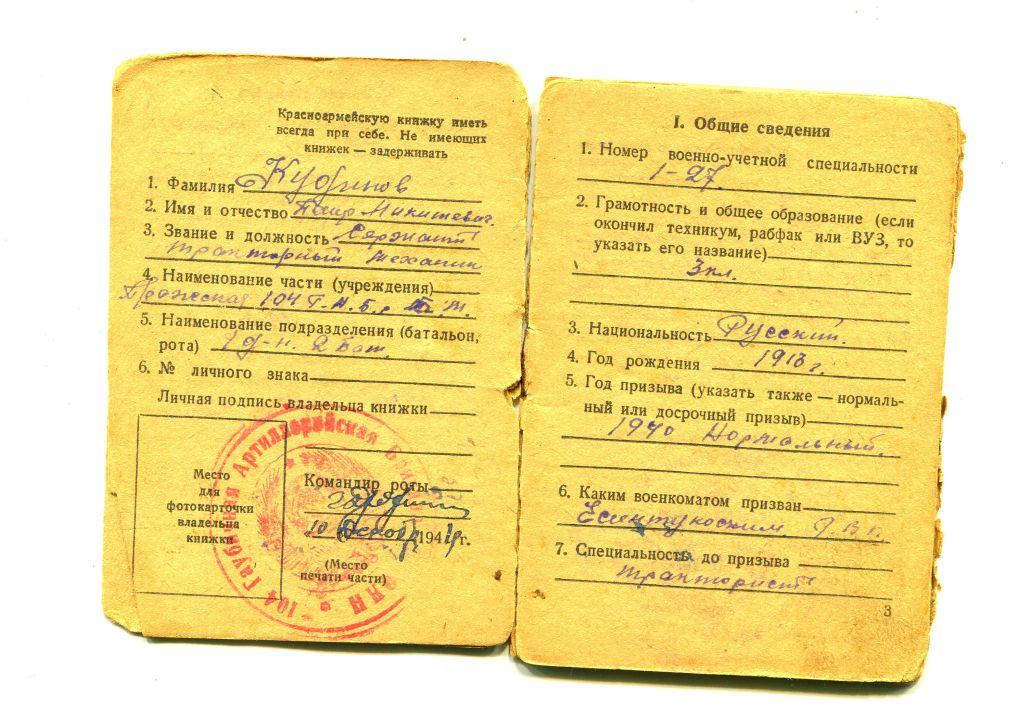 Красноармейскую книжку иметь
всегда при себе. Не имеющих
книжек — задерживать
1. Фамилия Кубинов
2. Имя и отчество Никитевич
3. Звание и должность Сержант
тракторный механик
4. Наименование части (учреждения)
104 Г.А.Б.
5. Наименование подразделения (батальон,
рота) 1 д-н. 2 бат.
6. № личного знака
Личная подпись владельца книжки
Место
для
фотокарточки
владельца
книжки
Командир роты
10 1944 г.
(Место
печати части)
104 Гаубичная Артиллерийская
I. Общие сведения
1. Номер военно-учетной специальности
1-27.
2. Грамотность и общее образование (если
окончил техникум, рабфак или ВУЗ, то
указать его название)
3 кл.
3. Национальность Русский.
4. Год рождения 1913 г.
5. Год призыва (указать также — нормаль-
ный или досрочный призыв)
1940 Нормальный.
6. Каким военкоматом призван
Р.В.К.
7. Специальность до призыва
тракторист
3